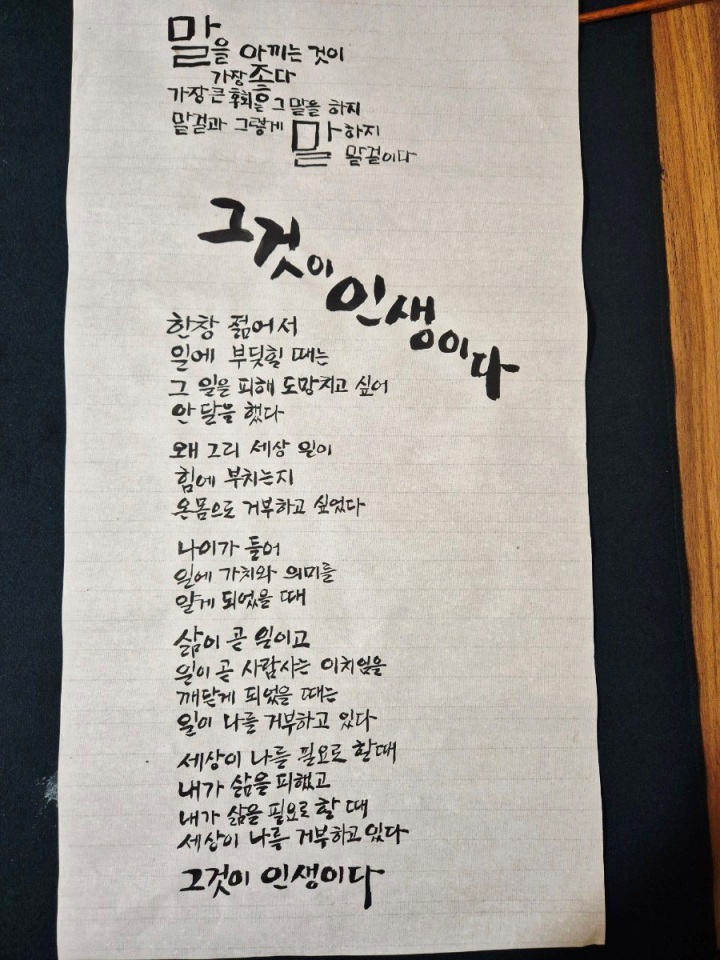 말을 아끼는 것이
가장 좋다
가장 큰 후회는 그 말을 하지
말걸과 그렇게 말하지
말걸이다
그것이 인생이다
한창 젊어서
일에 부딪힐 때는
그 일을 피해 도망치고 싶어
안달을 했다
왜 그리 세상 일이
힘에 부치는지
온몸으로 거부하고 싶었다
나이가 들어
일에 가치와 의미를
알게 되었을 때
삶이 곧 일이고
일이 곧 사람사는 이치임을
깨닫게 되었을 때는
일이 나를 거부하고 있다
세상이 나를 필요로 할때
내가 삶을 피했고
내가 삶을 필요로 할 때
세상이 나를 거부하고 있다
그것이 인생이다